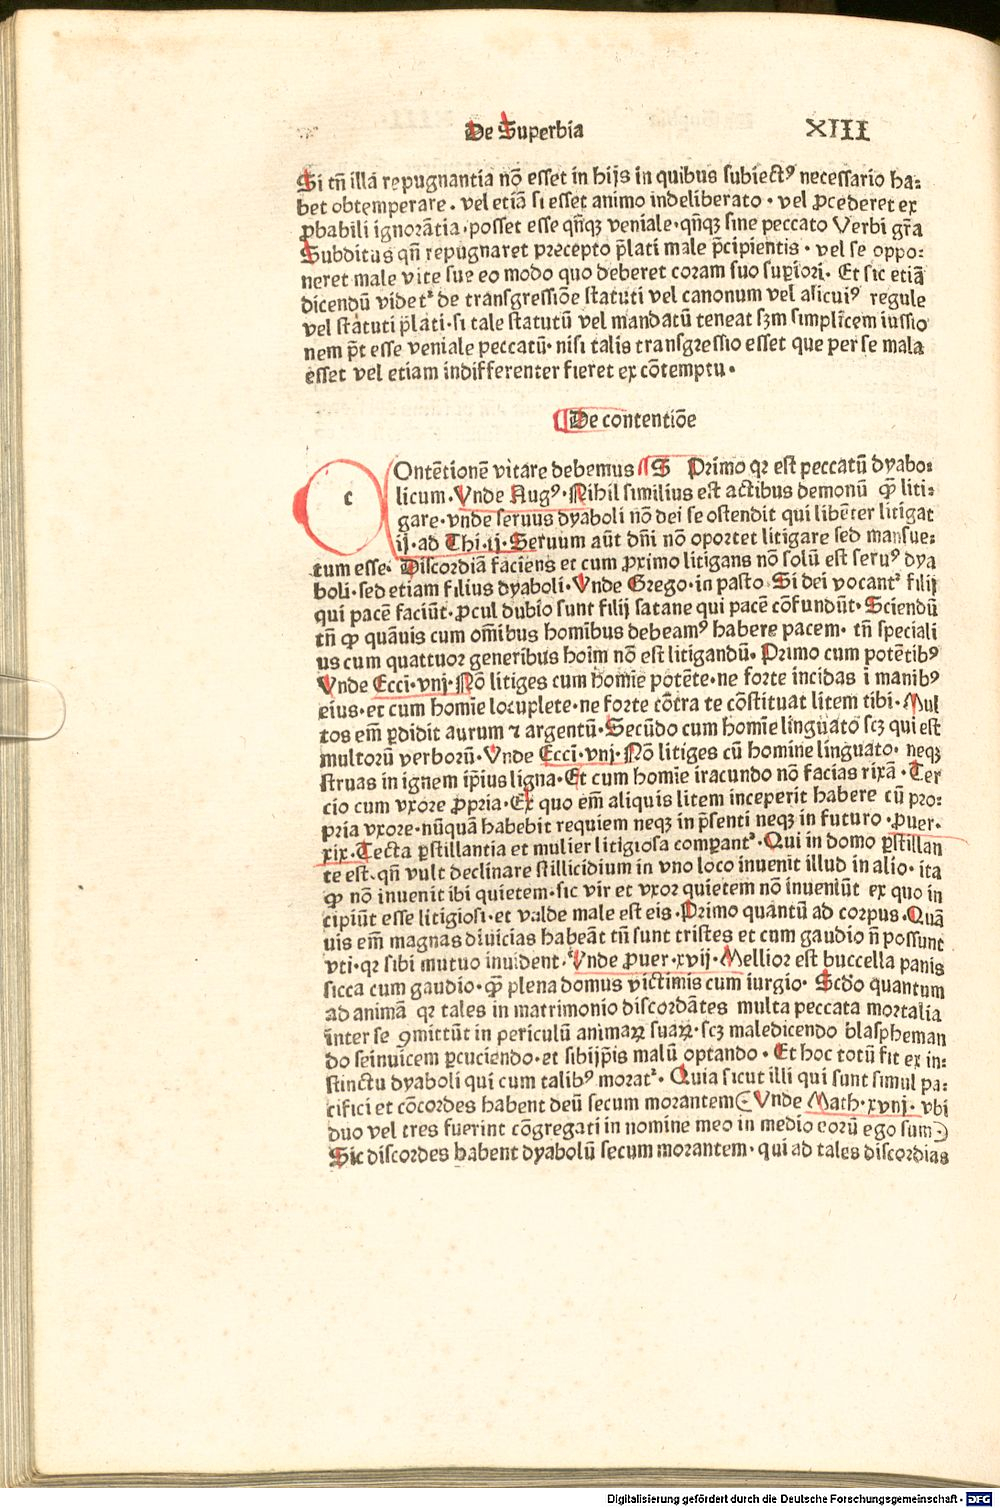 De Superbia XIII
Si tn̄ illā repugnantia nō esset in hijs in quibus subiectꝰ necessario ha-
bet obtemperare . vel etiā si esset animo indeliberato · vel ꝓcederet ex
ꝓbabili ignorātia · posset esse qn̄qꝫ veniale · qn̄qꝫ sine peccato Verbi gr̄a
Subditus qn̄ repugnaret precepto p̄lati male p̄cipientis · vel se oppo-
neret male vite sue eo modo quo deberet coram suo suꝑiori . Et sic etiā
dicendū videtᷣ de transgressiōe statuti vel canonum vel alicuiꝰ regule
vel statuti p̄lati · si tale statutū vel mandatū teneat sꝫm simplr̄cem iussio
nem p̄t esse veniale peccatū · nisi talis transgressio esset que per se mala
esset vel etiam indifferenter fieret ex cōtemptu .
De contentiōe
c Ontētionē vitare debemus S Primo qꝛ est peccatū dyabo-
licum . Vnde Augꝰ . Nihil similius est actibus demonū qꝫ̄ liti-
gare · vnde seruus dyaboli nō dei se ostendit qui libēter litigat
ij · ad Thi · ij · Seruum aūt dn̄i nō oportet litigare sed mansue-
tum esse . Discordiā faciens et cum ꝓximo litigans nō solū est seruꝰ dya
boli · sed etiam filius dyaboli . Vnde Grego · in pasto Si dei vocantᷣ filij
qui pacē faciūt · ꝓcul dubio sunt filij satane qui pacē cōfundūt · Sciendū
tn̄ ꝙ quāuis cum om̄ibus homībus debeamꝰ habere pacem · tn̄ speciali
us cum quattuor generibus hoīm nō est litigandū . Primo cum potētibꝰ
Vnde Ecci · vnj · Nō litiges cum homīe potēte · ne forte incidas ī manibꝰ
eius · et cum homīe locuplete · ne forte cōtra te cōstituat litem tibi . Mul
tos em̄ ꝑdidit aurum ⁊ argentū . Secūdo cum homīe linguato scꝫ qui est
multorū verborū . Vnde Ecci · vnj · Nō litiges cū homine linguato · neqꝫ
struas in ignem ip̄ius ligna . Et cum homīe iracundo nō facias rixā . Ter
cio cum vxore ꝓpria . Ex quo em̄ aliquis litem inceperit habere cū pro-
pria vxore · nūquā habebit requiem neqꝫ in p̄senti neqꝫ in futuro · Puer .
xix · Tecta ꝑstillantia et mulier litigiosa comꝑantᷣ . Qui in domo ꝑstillan
te est . qn̄ vult declinare stillicidium in vno loco inuenit illud in alio · ita
ꝙ nō inuenit ibi quietem · sic vir et vxor quietem nō inueniūt ex quo in
cipiūt esse litigiosi · et valde male est eis . Primo quantū ad corpus . Quā
uis em̄ magnas diuicias habeāt tn̄ sunt tristes et cum gaudio n̄ possunt
vti · qꝛ sibi mutuo inuident . Vnde Puer · xvij · Mellior est buccella panis
sicca cum gaudio · qꝫ̄ plena domus victimis cum iurgio . Scd̄o quantum
ad animā qꝛ tales in matrimonio discordātes multa peccata mortalia
inter se ꝯmittūt in periculū animaꝝ suaꝝ · scꝫ maledicendo blaspheman
do seinuicem ꝑcuciendo · et sibijp̄is malū optando . Et hoc totū fit ex in-
stinctu dyaboli qui cum talibꝰ moratᷣ . Quia sicut illi qui sunt simul pa-
cifici et cōcordes habent deū secum morantem ( Vnde Math · xvnj · vbi
duo vel tres fuerint cōgregati in nomine meo in medio eorū ego sum )
Sic discordes habent dyabolū secum morantem · qui ad tales discordias
Digitalisierung gefördert durch die Deutsche Forschungsgemeinschaft - DFG